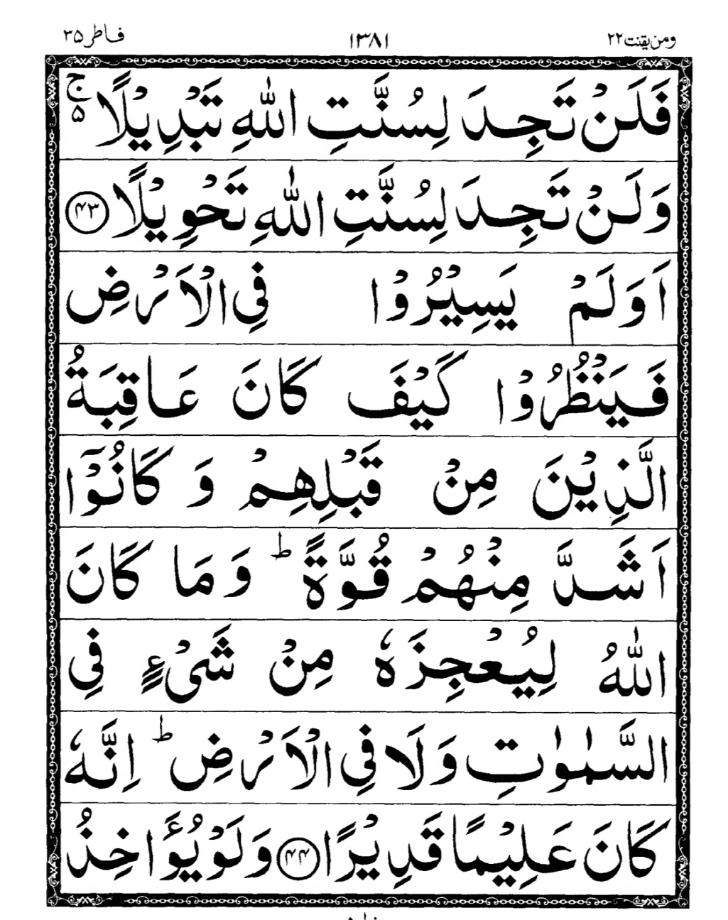 ومن یقنت۲۲ ۱۳۸۱ فاطر۳۵
فَلَنْ تَجِدَ لِسُنَّتِ اللهِ تَبْدِيْلًا ۚ۵
وَلَنْ تَجِدَ لِسُنَّتِ اللهِ تَحْوِيْلًا ﴿۴۳﴾
اَوَلَمْ يَسِيْرُوْا فِي الْاَرْضِ
فَيَنْظُرُوْا كَيْفَ كَانَ عَاقِبَةُ
الَّذِيْنَ مِنْ قَبْلِهِمْ وَ كَانُوْۤا
اَشَدَّ مِنْهُمْ قُوَّةً ؕ وَ مَا كَانَ
اللهُ لِيُعْجِزَهٗ مِنْ شَيْءٍ فِي
السَّمٰوٰتِ وَلَا فِي الْاَرْضِ ؕ اِنَّهٗ
كَانَ عَلِيْمًا قَدِيْرًا ﴿۴۴﴾ وَلَوْ يُؤَاخِذُ